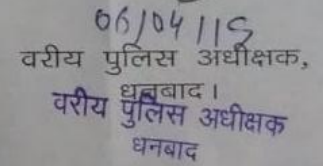 06/04/15
वरीय पुलिस अधीक्षक,
धनबाद।
वरीय पुलिस अधीक्षक
धनबाद